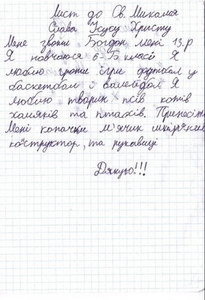 Лист до Св. Миколая
Слава Ісусу Христу
Мене звати Богдан мені 13.р
Я навчаюся 6-Б класі Я
люблю грати ігри футбол у
баскетбол і волейбол Я
люблю тварин псів котів
хомяків та птахів. Принесіть
Мені копачки м'ячик шкіряний
конструктор, та рукавиці
Дякую!!!